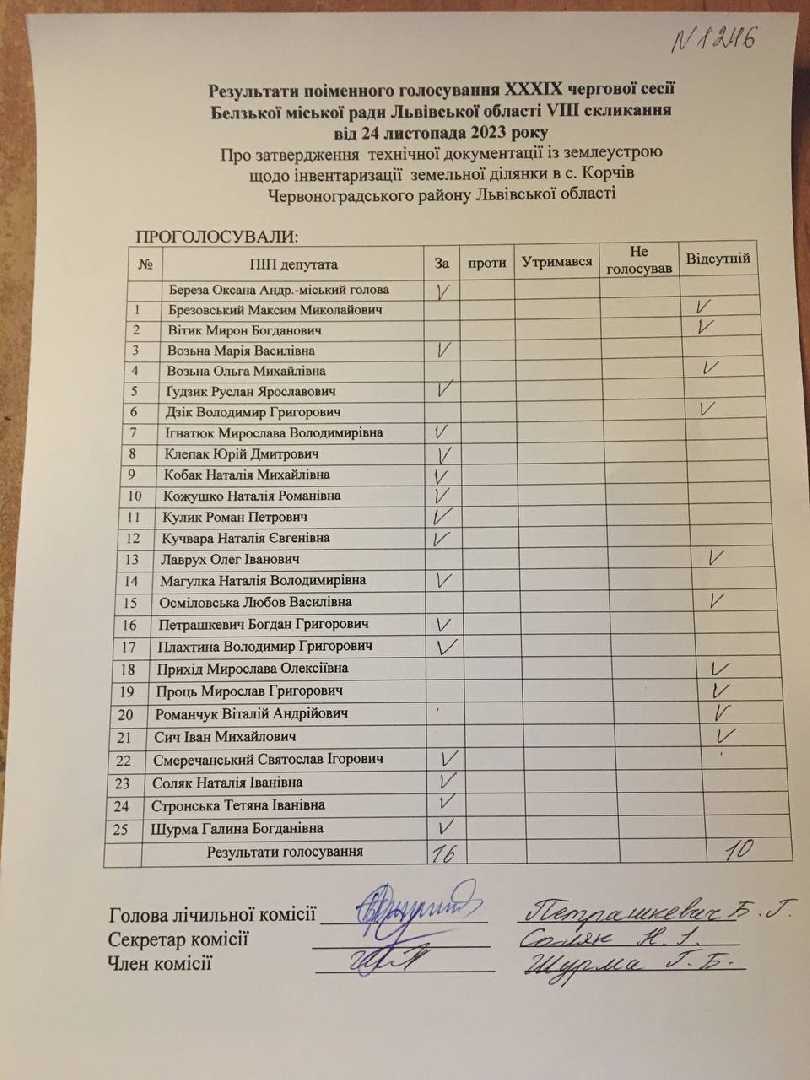 N 1246
Результати поіменного голосування XXXIX чергової сесії
Белзької міської ради Львівської області VIII скликання
від 24 листопада 2023 року
Про затвердження технічної документації із землеустрою
щодо інвентаризації земельної ділянки в с. Корчів
Червоноградського району Львівської області
ПРОГОЛОСУВАЛИ:
№ ПІП депутата За проти Утримався Не голосував Відсутній
Береза Оксана Андр.-міський голова V
1 Брезовський Максим Миколайович V
2 Вітик Мирон Богданович V
3 Возьна Марія Василівна V
4 Возьна Ольга Михайлівна V
5 Ґудзик Руслан Ярославович V
6 Дзік Володимир Григорович V
7 Ігнатюк Мирослава Володимирівна V
8 Клепак Юрій Дмитрович V
9 Кобак Наталія Михайлівна V
10 Кожушко Наталія Романівна V
11 Кулик Роман Петрович V
12 Кучвара Наталія Євгенівна V
13 Лаврух Олег Іванович V
14 Магулка Наталія Володимирівна V
15 Осміловська Любов Василівна V
16 Петрашкевич Богдан Григорович V
17 Плахтина Володимир Григорович V
18 Прихід Мирослава Олексіївна V
19 Проць Мирослав Григорович V
20 Романчук Віталій Андрійович V
21 Сич Іван Михайлович V
22 Смеречанський Святослав Ігорович V
23 Соляк Наталія Іванівна V
24 Стронська Тетяна Іванівна V
25 Шурма Галина Богданівна V
Результати голосування 16 10
Голова лічильної комісії Петрашкевич Б. Г.
Секретар комісії Соляк Н. І.
Член комісії Шурма Г. Б.